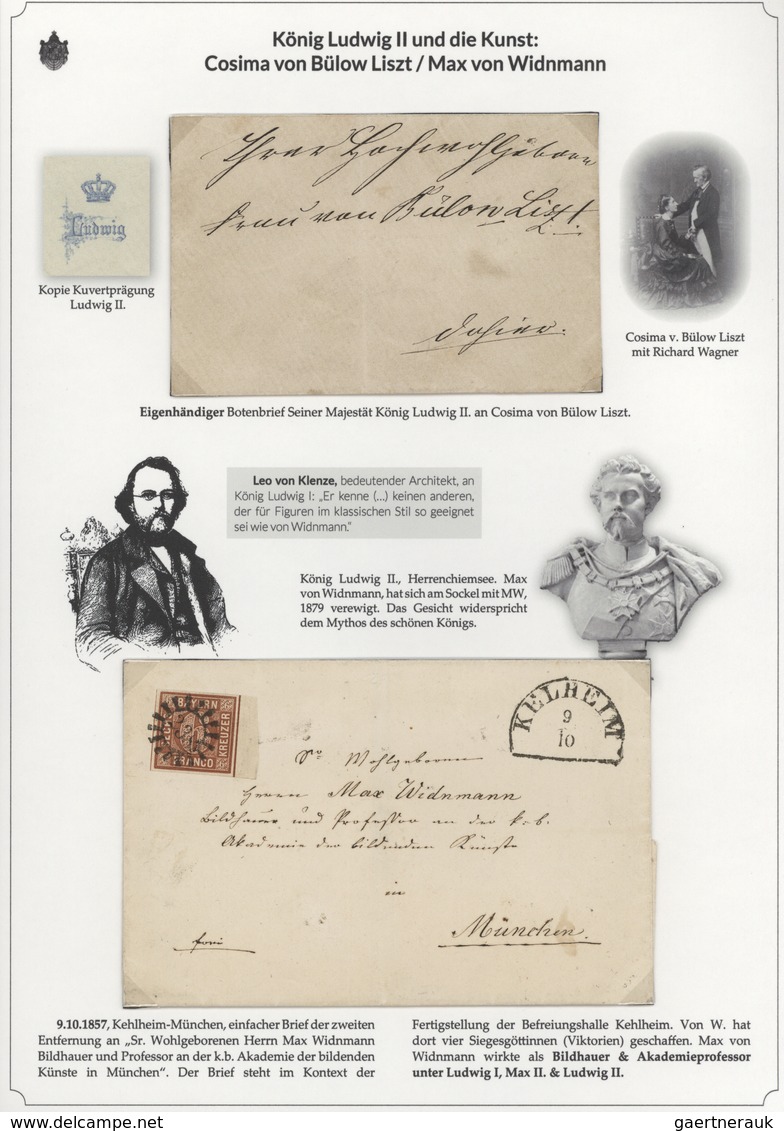 König Ludwig II und die Kunst:
Cosima von Bülow Liszt / Max von Widnmann
Ludwig
Kopie Kuvertprägung
Ludwig II.
Ihrer Hochwohlgeboren
Frau von Bülow Liszt
dahier.
Cosima v. Bülow Liszt
mit Richard Wagner
Eigenhändiger Botenbrief Seiner Majestät König Ludwig II. an Cosima von Bülow Liszt.
Leo von Klenze, bedeutender Architekt, an
König Ludwig I: „Er kenne (...) keinen anderen,
der für Figuren im klassischen Stil so geeignet
sei wie von Widnmann.“
König Ludwig II., Herrenchiemsee. Max
von Widnmann, hat sich am Sockel mit MW,
1879 verewigt. Das Gesicht widerspricht
dem Mythos des schönen Königs.
BAYERN
KREUZER
FRANCO
KELHEIM
9
10
Sr Wohlgeboren
Herrn Max Widnmann
Bildhauer und Professor an der k. b.
Akademie der bildenden Künste
in
München.
frei
9.10.1857, Kehlheim-München, einfacher Brief der zweiten
Entfernung an „Sr. Wohlgeborenen Herrn Max Widnmann
Bildhauer und Professor an der k.b. Akademie der bildenden
Künste in München“. Der Brief steht im Kontext der
Fertigstellung der Befreiungshalle Kehlheim. Von W. hat
dort vier Siegesgöttinnen (Viktorien) geschaffen. Max von
Widnmann wirkte als Bildhauer & Akademieprofessor
unter Ludwig I, Max II. & Ludwig II.
gaertnerauk